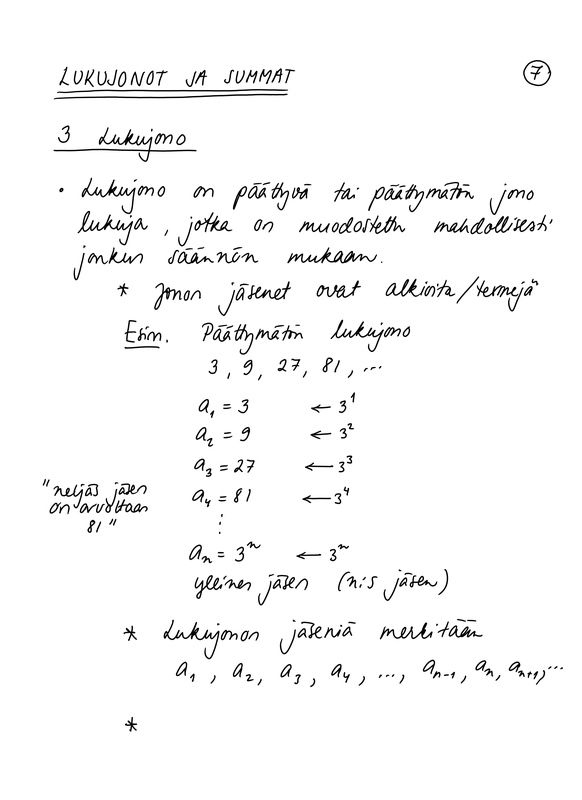 LUKUJONOT JA SUMMAT
7
3 Lukujono
• Lukujono on päättyvä tai päättymätön jono
lukuja, jotka on muodostettu mahdollisesti
jonkun säännön mukaan.
* Jonon jäsenet ovat alkioita/termejä
Esim. Päättymätön lukujono
3, 9, 27, 81, ...
a₁ = 3 ← 3¹
a₂ = 9 ← 3²
a₃ = 27 ← 3³
"neljäs jäsen
on arvoltaan
81"
a₄ = 81 ← 3⁴
⋮
aₙ = 3ⁿ ← 3ⁿ
yleinen jäsen (n:s jäsen)
* Lukujonon jäseniä merkitään
a₁, a₂, a₃, a₄, ..., aₙ₋₁, aₙ, aₙ₊₁, ...
*